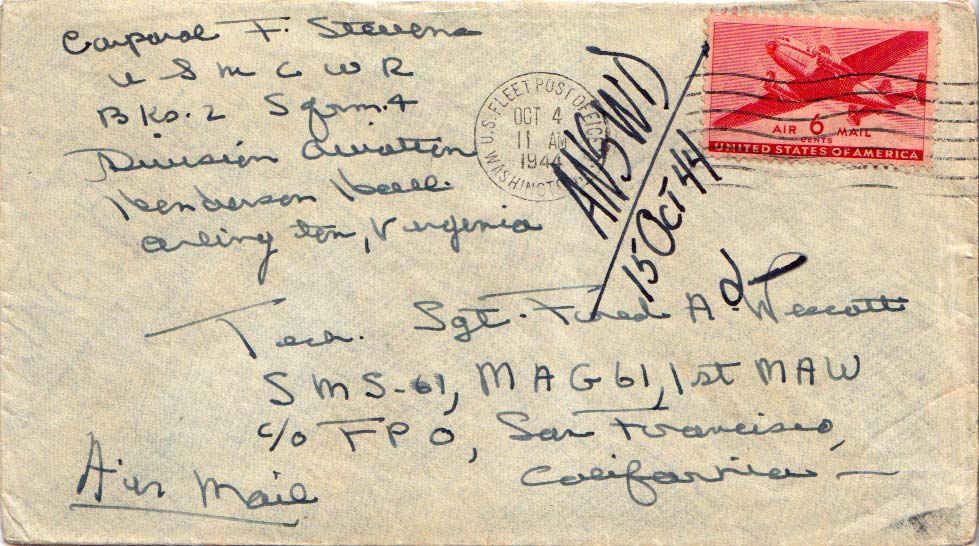 Corporal F. Stevens
U S M C W R
Bks. 2 Sqrm. 4
Division Aviation
Henderson Hall
Arlington, Virginia
U.S. FLEET POST OFFICE
OCT 4
11 AM
1944
WASHINGTON
ANSW'D
15 OCT 44
AIR 6 MAIL
CENTS
UNITED STATES OF AMERICA
Tech. Sgt. Fred A. Wescott
SMS-61, MAG 61, 1st MAW
c/o FPO, San Francisco,
California —
Air Mail